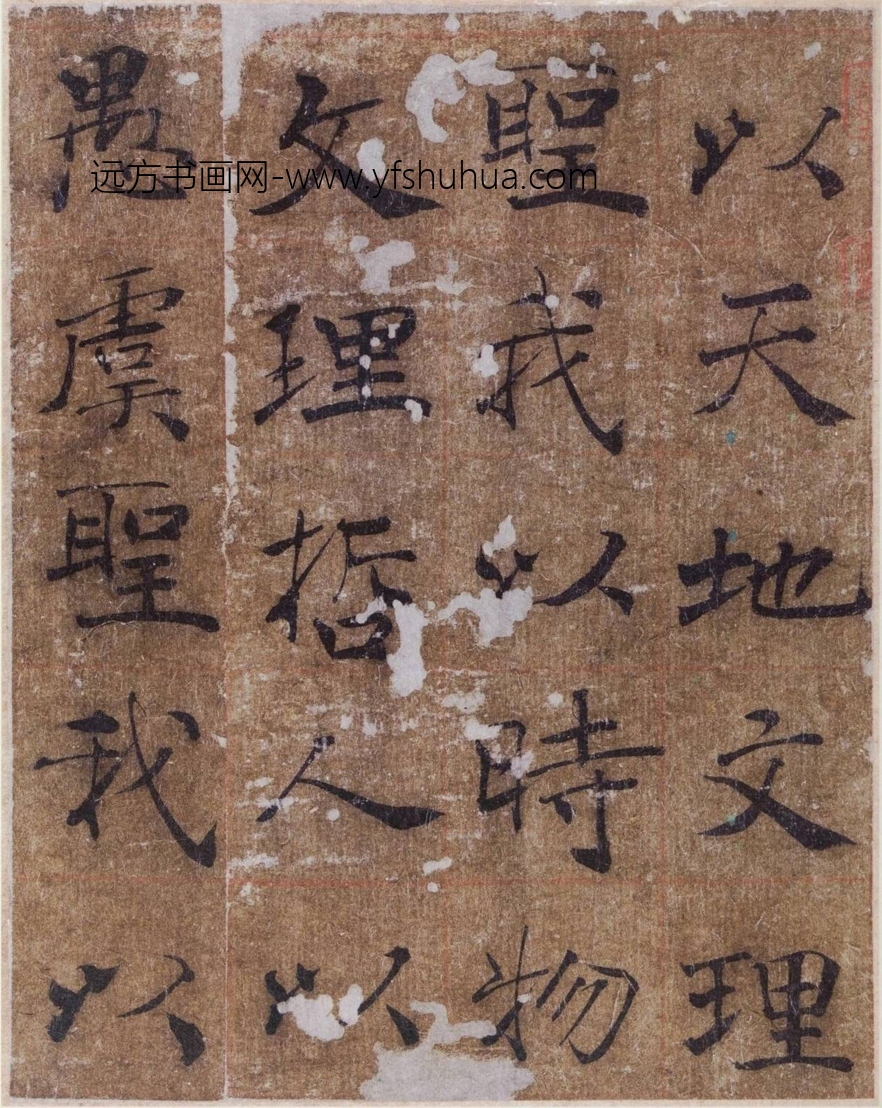 以天地文理
聖我以時物
文理哲人以
愚虞聖我以
远方书画网-www.yfshuhua.com